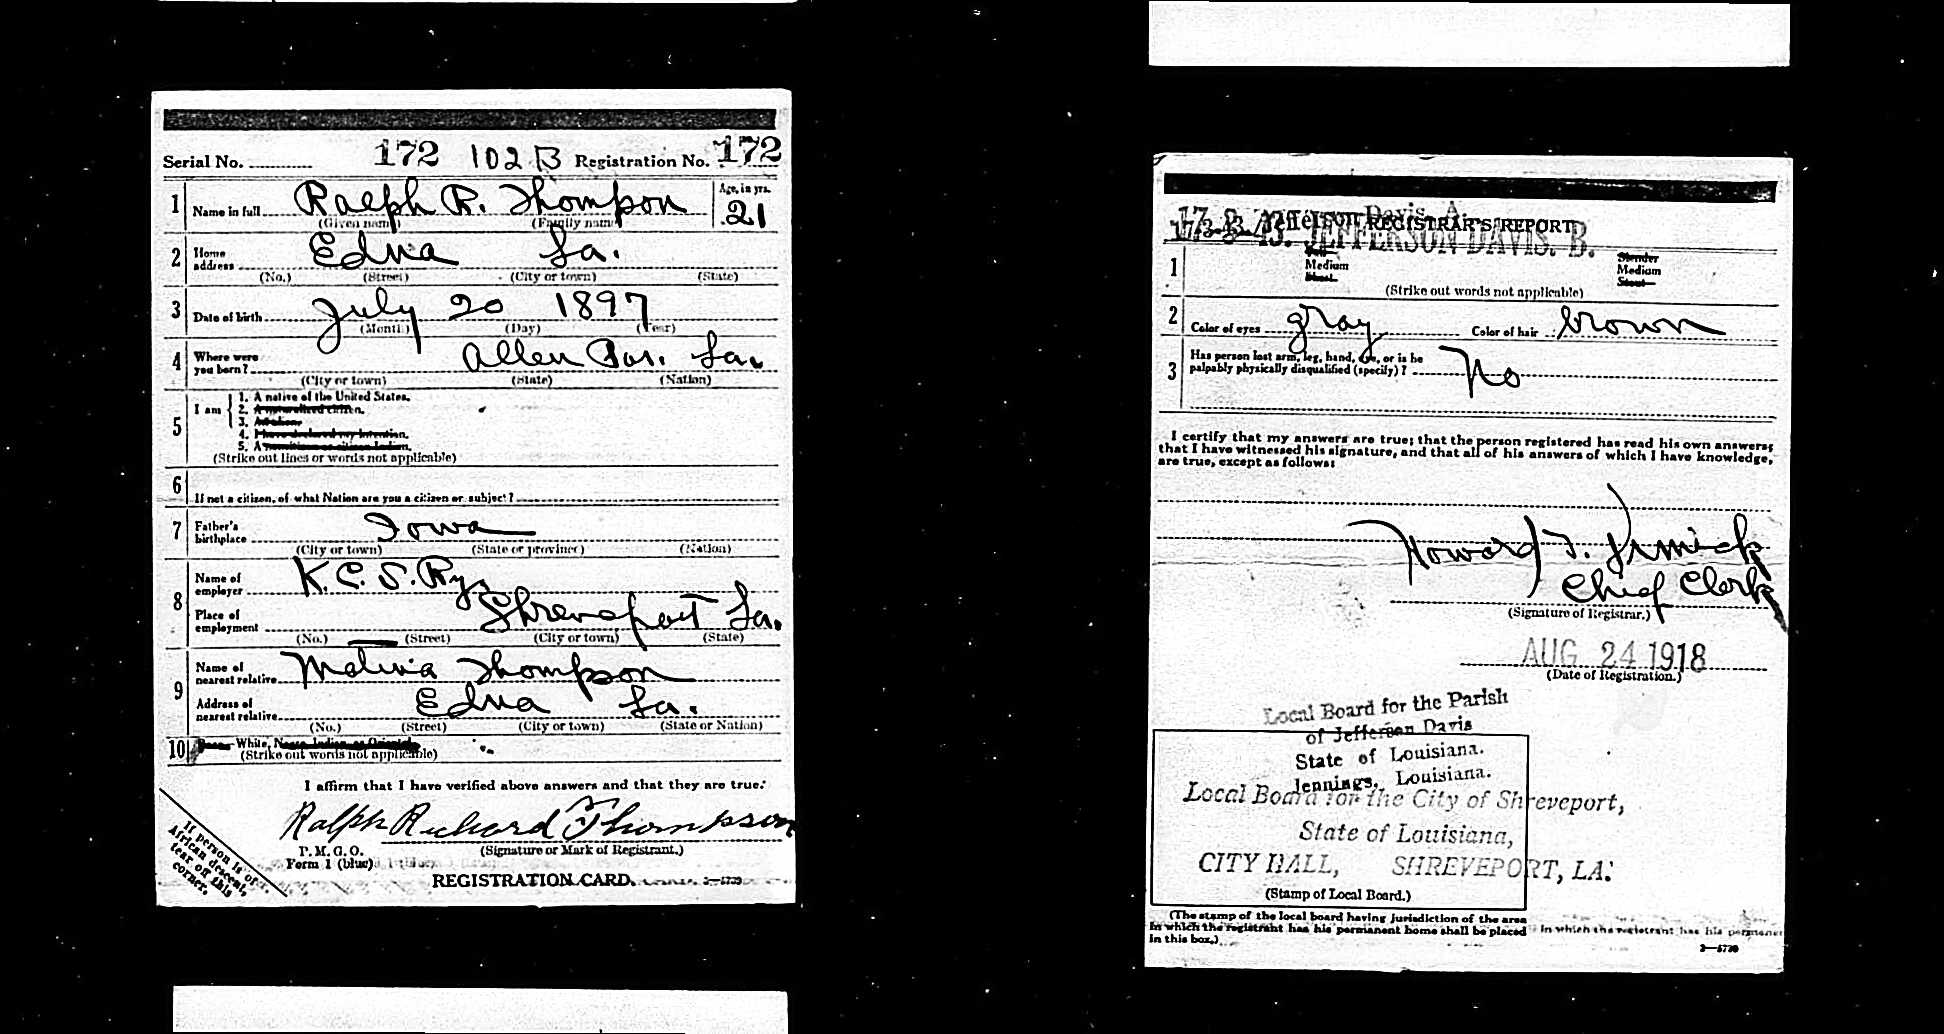 Serial No. 172 102 B Registration No. 172
1 Name in full Ralph R. Thompson Age, in yrs. 21
(Given name) (Family name)
2 Home address Edna La.
(No.) (Street) (City or town) (State)
3 Date of birth July 20 1897
(Month) (Day) (Year)
4 Where were you born? Allen Par. La.
(City or town) (State) (Nation)
5 I am
1. A native of the United States.
2. A naturalized citizen.
3. An alien.
4. I have declared my intention.
5. A noncitizen or citizen Indian.
(Strike out lines or words not applicable)
6 If not a citizen, of what Nation are you a citizen or subject?
7 Father's birthplace Iowa
(City or town) (State or province) (Nation)
8 Name of employer K. C. S. Ry.
Place of employment Shreveport La.
(No.) (Street) (City or town) (State)
9 Name of nearest relative Thompson
Address of nearest relative Edna La.
(No.) (Street) (City or town) (State or Nation)
10 Race—White, Negro, Indian, or Oriental
(Strike out words not applicable)
I affirm that I have verified above answers and that they are true.
Ralph Richard Thompson
P. M. G. O. (Signature or Mark of Registrant.)
Form 1 (blue)
REGISTRATION CARD. 3—5739
If person is of
African descent,
tear off this
corner.
REGISTRAR'S REPORT
JEFFERSON DAVIS. B.
1 Medium Slender
Medium
Stout
(Strike out words not applicable)
2 Color of eyes gray Color of hair brown
3 Has person lost arm, leg, hand, eye, or is he
palpably physically disqualified (specify)? No
I certify that my answers are true; that the person registered has read his own answers;
that I have witnessed his signature, and that all of his answers of which I have knowledge,
are true, except as follows:
Howard
Chief Clerk
(Signature of Registrar.)
AUG 24 1918
(Date of Registration.)
Local Board for the Parish
of Jefferson Davis
State of Louisiana.
Jennings, Louisiana.
Local Board for the City of Shreveport,
State of Louisiana,
CITY HALL, SHREVEPORT, LA.
(Stamp of Local Board.)
(The stamp of the local board having jurisdiction of the area
in which the registrant has his permanent home shall be placed
in this box.)
3—5739